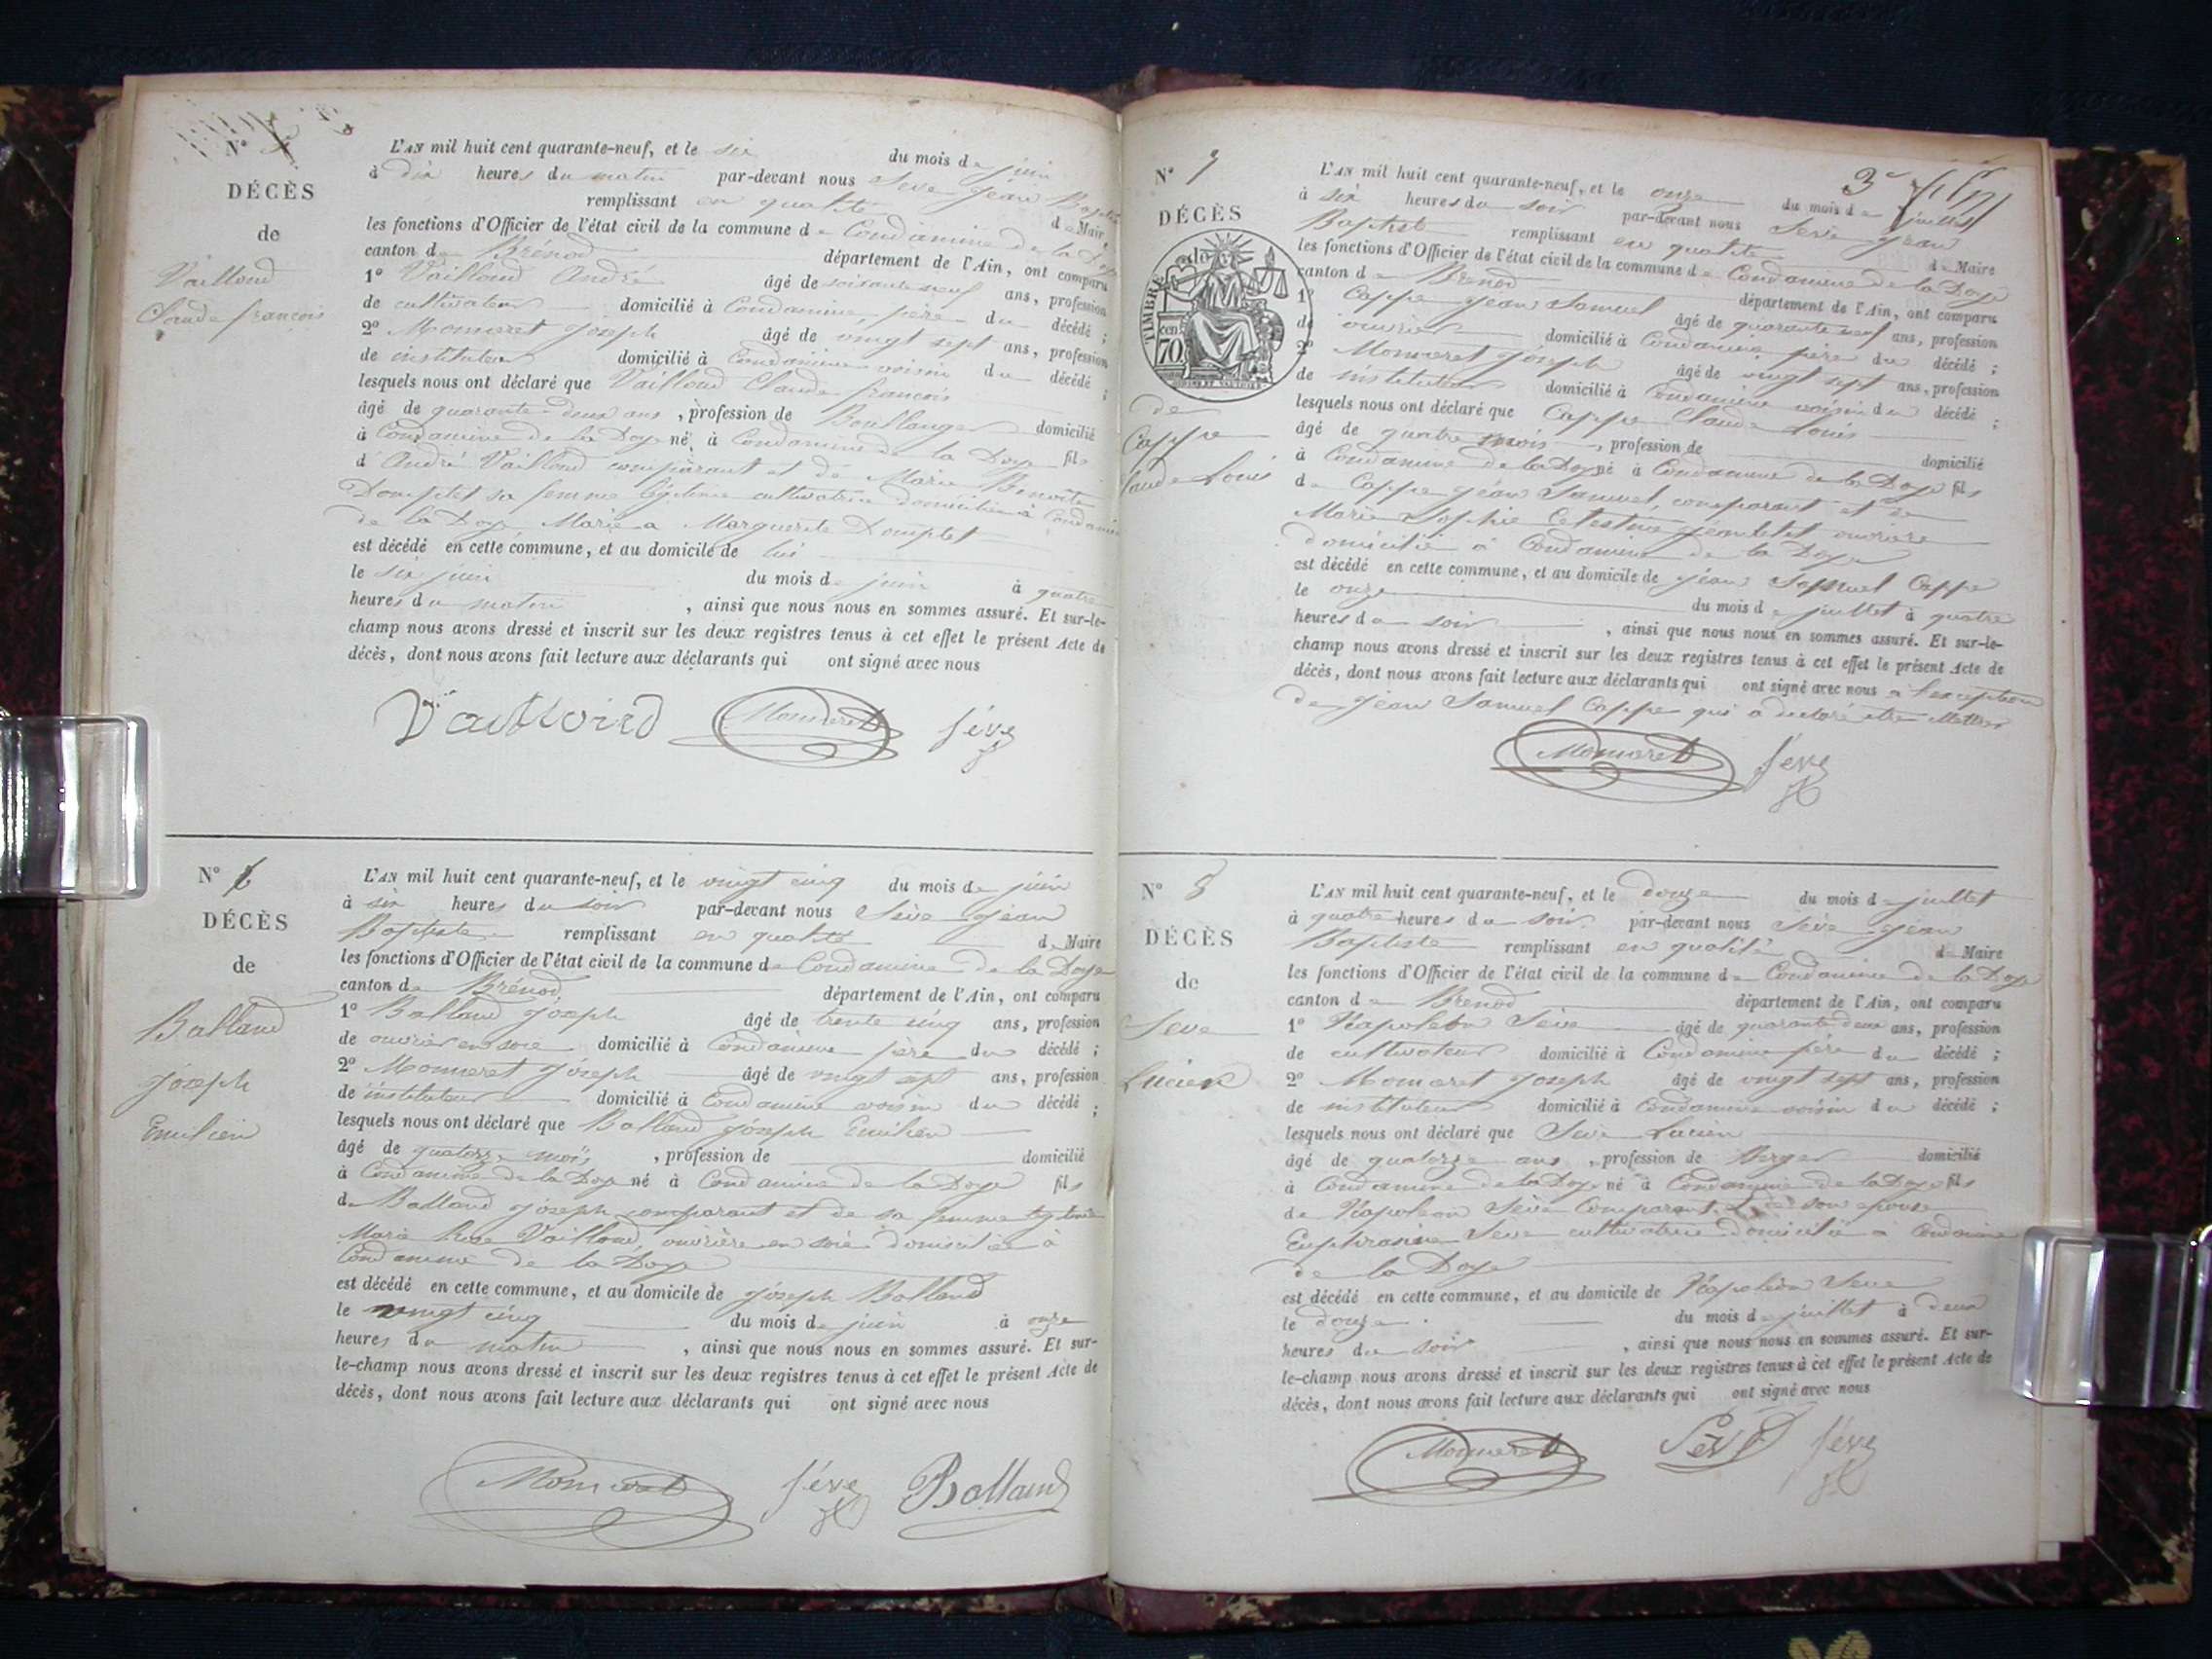 N°
DÉCÈS
de
Vailloud
Claude françois
L'AN mil huit cent quarante-neuf, et le six du mois de juin
à dix heures du matin par-devant nous Seve Jean Baptiste
remplissant en qualité de Maire
les fonctions d'Officier de l'état civil de la commune de Condamine de la Doye
canton de Brénod département de l'Ain, ont comparu
1° Vailloud André âgé de soixante neuf ans, profession
de cultivateur domicilié à Condamine, père du décédé ;
2° Monneret Joseph âgé de vingt sept ans, profession
de instituteur domicilié à Condamine voisin du décédé ;
lesquels nous ont déclaré que Vailloud Claude françois
âgé de quarante-deux ans, profession de Boullanger domicilié
à Condamine de la Doye né à Condamine de la Doye fils
d'André Vailloud comparant et de Marie Benoite
Domplet sa femme légitime cultivatrice domiciliée à Condamine
de la Doye Marie a Marguerite Domplet
est décédé en cette commune, et au domicile de lui
le six juin du mois de juin à quatre
heures du matin, ainsi que nous nous en sommes assuré. Et sur-le-
champ nous avons dressé et inscrit sur les deux registres tenus à cet effet le présent Acte de
décès, dont nous avons fait lecture aux déclarants qui ont signé avec nous
Vailloud Monneret Séve
N° 6
DÉCÈS
de
Balland
Joseph
Emilien
L'AN mil huit cent quarante-neuf, et le vingt cinq du mois de juin
à six heures du soir par-devant nous Sève Jean
Baptiste remplissant en qualité de Maire
les fonctions d'Officier de l'état civil de la commune de Condamine de la Doye
canton de Brénod département de l'Ain, ont comparu
1° Balland Joseph âgé de trente cinq ans, profession
de ouvrier en soie domicilié à Condamine père du décédé ;
2° Monneret Joseph âgé de vingt sept ans, profession
de instituteur domicilié à Condamine voisin du décédé ;
lesquels nous ont déclaré que Balland Joseph Emilien
âgé de quatorze mois, profession de domicilié
à Condamine de la Doye né à Condamine de la Doye fils
de Balland Joseph comparant et de sa femme légitime
Marie Rose Vailloud, ouvrière en soie domiciliée à
Condamine de la Doye
est décédé en cette commune, et au domicile de Joseph Balland
le vingt cinq du mois de juin à onze
heures du matin, ainsi que nous nous en sommes assuré. Et sur-
le-champ nous avons dressé et inscrit sur les deux registres tenus à cet effet le présent Acte de
décès, dont nous avons fait lecture aux déclarants qui ont signé avec nous
Monneret Séve Balland
3e
N° 7
DÉCÈS
TIMBRE
70 cen
de
Cappe
Claude Louis
L'AN mil huit cent quarante-neuf, et le onze du mois de juillet
à six heures du soir par-devant nous Sève Jean
Baptiste remplissant en qualité de Maire
les fonctions d'Officier de l'état civil de la commune de Condamine de la Doye
canton de Brenod département de l'Ain, ont comparu
1° Cappe Jean Samuel âgé de quarante neuf ans, profession
de ouvrier domicilié à Condamine père du décédé ;
2° Monneret Joseph âgé de vingt sept ans, profession
de instituteur domicilié à Condamine voisin du décédé ;
lesquels nous ont déclaré que Cappe Claude Louis
âgé de quatre mois, profession de domicilié
à Condamine de la Doye né à Condamine de la Doye fils
de Cappe Jean Samuel, comparant et de
Marie Sophie Celestine ouvrière
domiciliée à Condamine de la Doye
est décédé en cette commune, et au domicile de Jean Samuel Cappe
le onze du mois de juillet à quatre
heures du soir, ainsi que nous nous en sommes assuré. Et sur-le-
champ nous avons dressé et inscrit sur les deux registres tenus à cet effet le présent Acte de
décès, dont nous avons fait lecture aux déclarants qui ont signé avec nous a l'exception
de Jean Samuel Cappe qui a declaré etre
Monneret Seve
N° 8
DÉCÈS
de
Seve
Lucien
L'AN mil huit cent quarante-neuf, et le douze du mois de juillet
à quatre heures du soir par-devant nous Sève Jean
Baptiste remplissant en qualité de Maire
les fonctions d'Officier de l'état civil de la commune de Condamine de la Doye
canton de Brenod département de l'Ain, ont comparu
1° Napoléon Sève âgé de quarante deux ans, profession
de cultivateur domicilié à Condamine père du décédé ;
2° Monneret Joseph âgé de vingt sept ans, profession
de instituteur domicilié à Condamine voisin du décédé ;
lesquels nous ont déclaré que Seve Lucien
âgé de quatorze ans, profession de Berger domicilié
à Condamine de la Doye né à Condamine de la Doye fils
de Napoléon Sève Comparant et de son epouse
Euphrosine Seve cultivatrice domiciliée à Condamine
de la Doye
est décédé en cette commune, et au domicile de Napoléon Seve
le douze du mois de juillet à deux
heures du soir, ainsi que nous nous en sommes assuré. Et sur-
le-champ nous avons dressé et inscrit sur les deux registres tenus à cet effet le présent Acte de
décès, dont nous avons fait lecture aux déclarants qui ont signé avec nous
Monneret Sève Séve